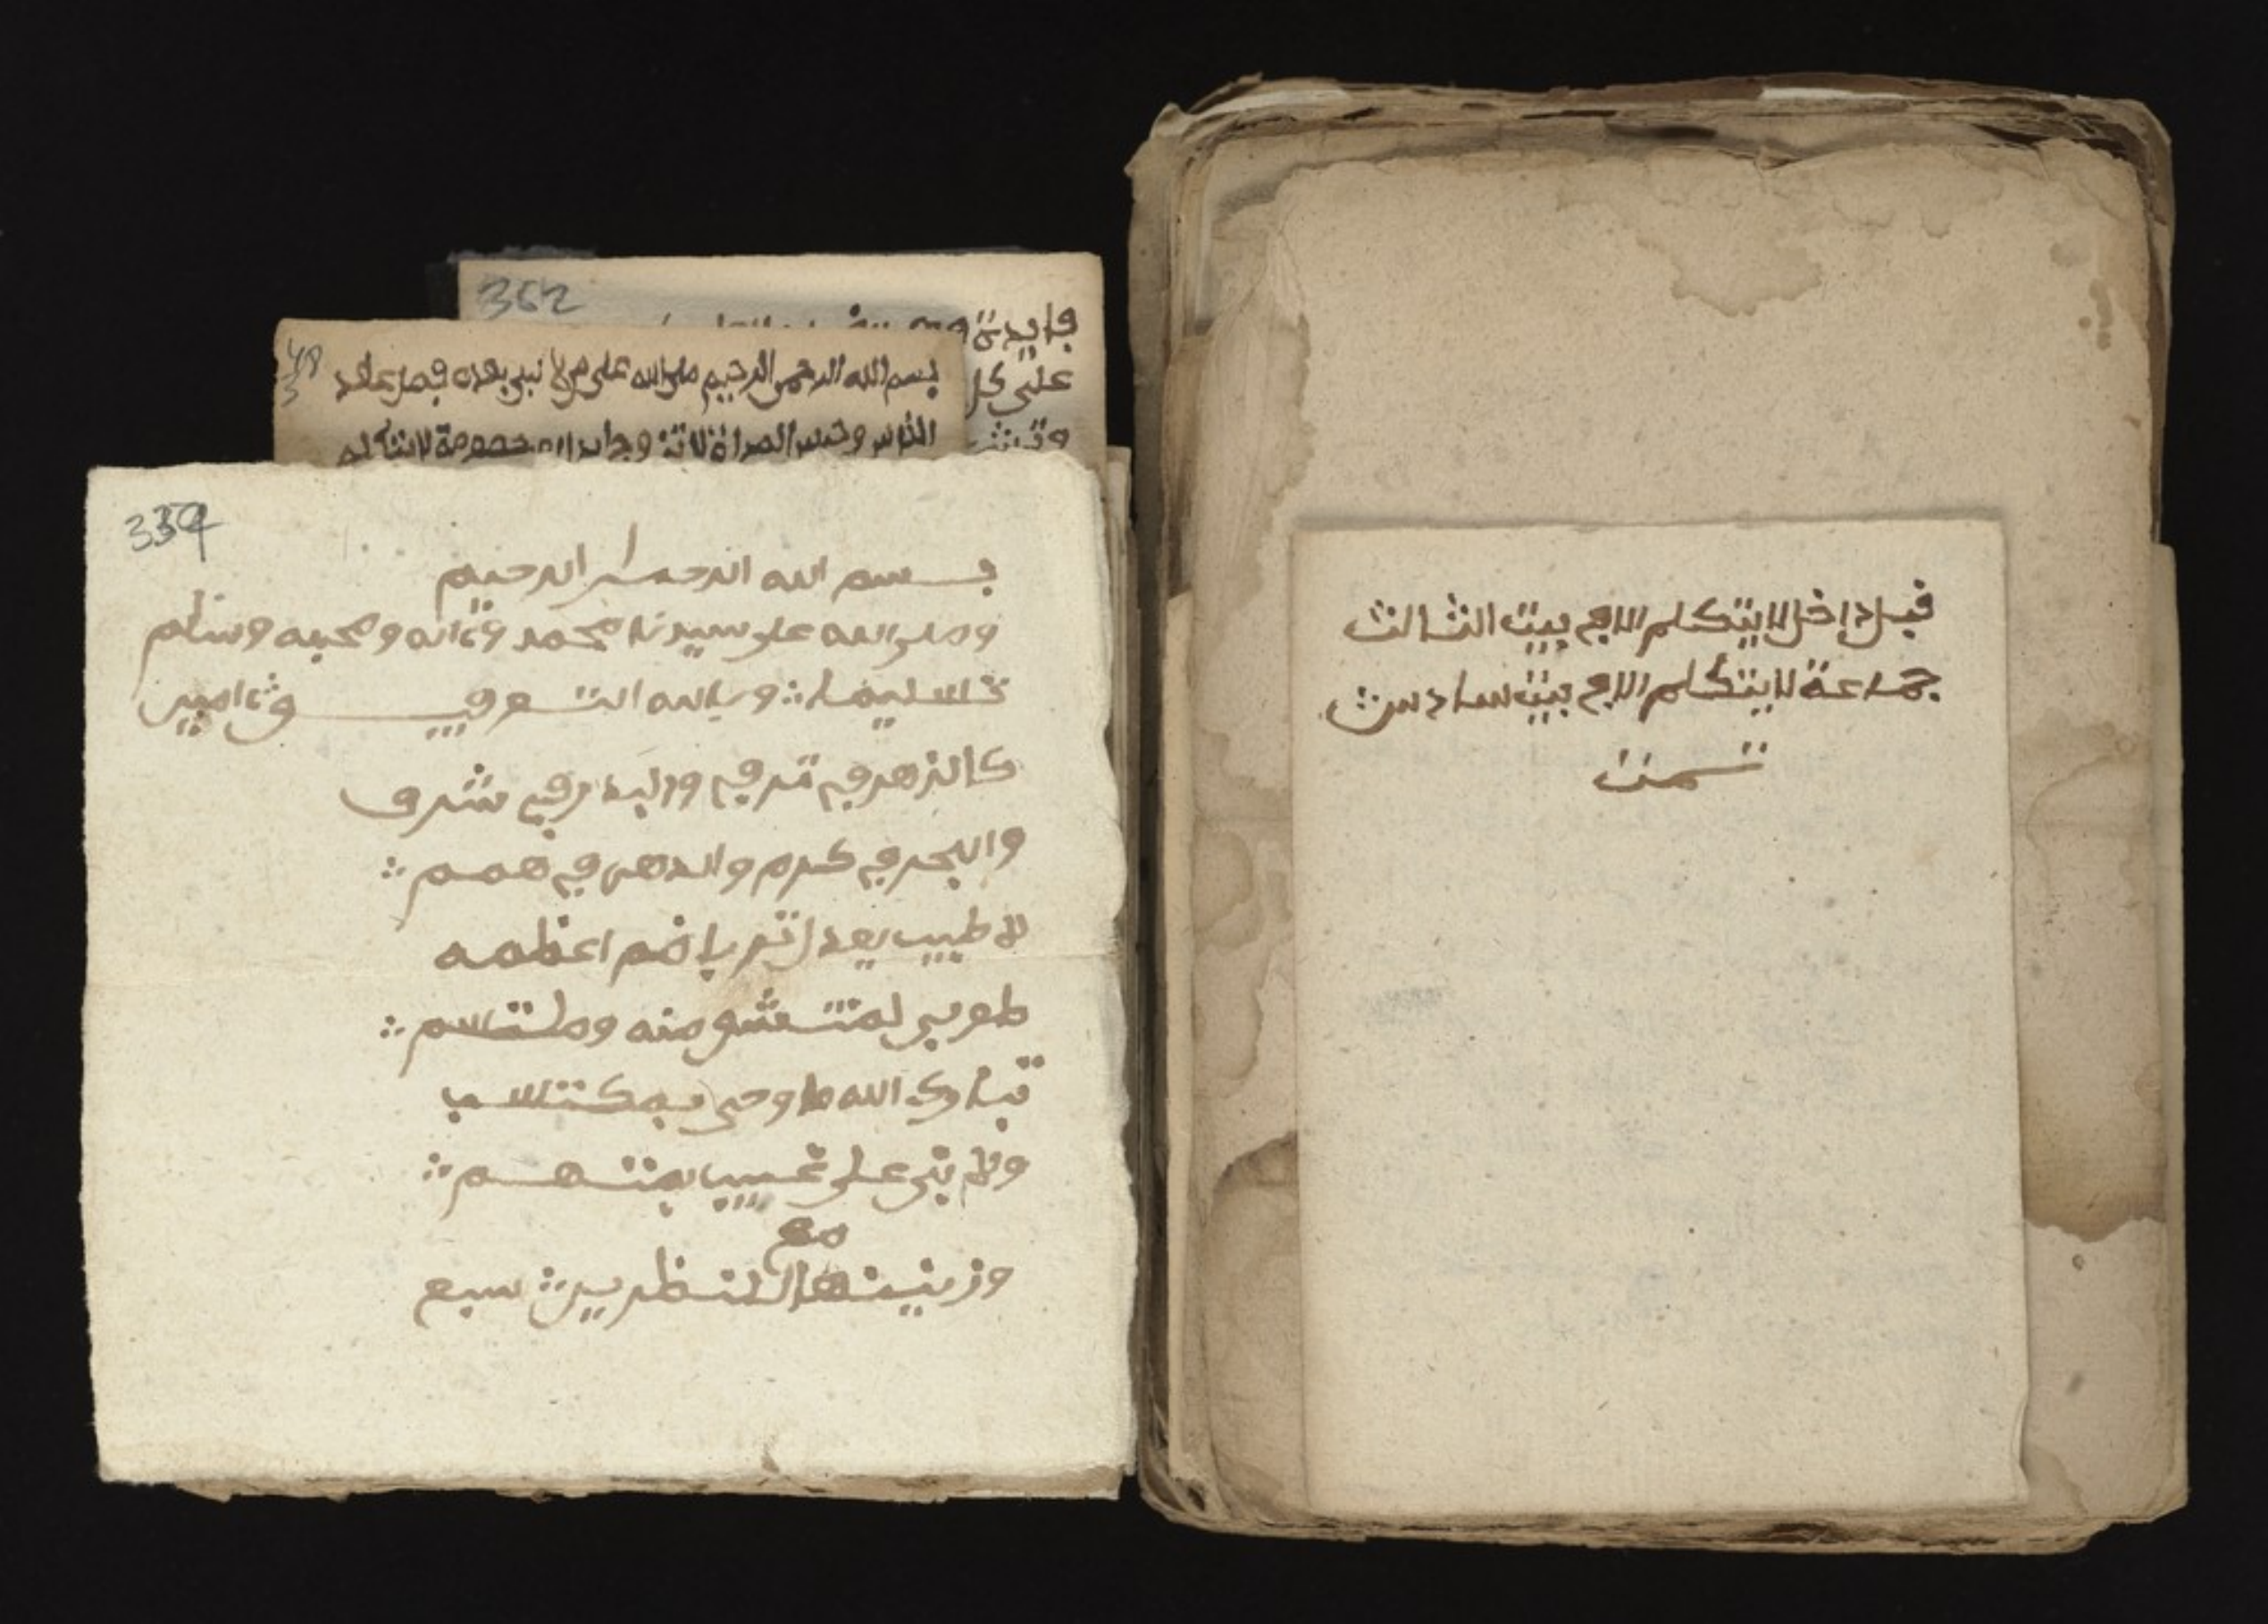 362
فايدة
على كل
48
3
بسم الله الرحمن الرحيم صلى الله على من لا نبي بعده فصل عقد
الناس وحبس المراة لا تزوجا خصومة لا يتكلم
339
بسم الله الرحمن الرحيم
وصلى الله على سيدنا محمد وءاله وصحبه وسلم
تسليما ∴ وبالله التوفيق ءامين
كالزهر في ترف والبدر في شرف
والبحر في كرم والدهر في همم ∴
لا طيب يعدل تربا ضم اعظمه
طوبى لمنتشق منه وملتسم ∴
تبارك الله ما وحي بمكتسب
ولا نبي على غيب بمتهم ∴
مع
وزينها للنظرين ∴ سبع
قبل داخل لا يتكلم الا في بيت الثالث
جماعة لا يتكلم الا في بيت سادس ∴
تمت